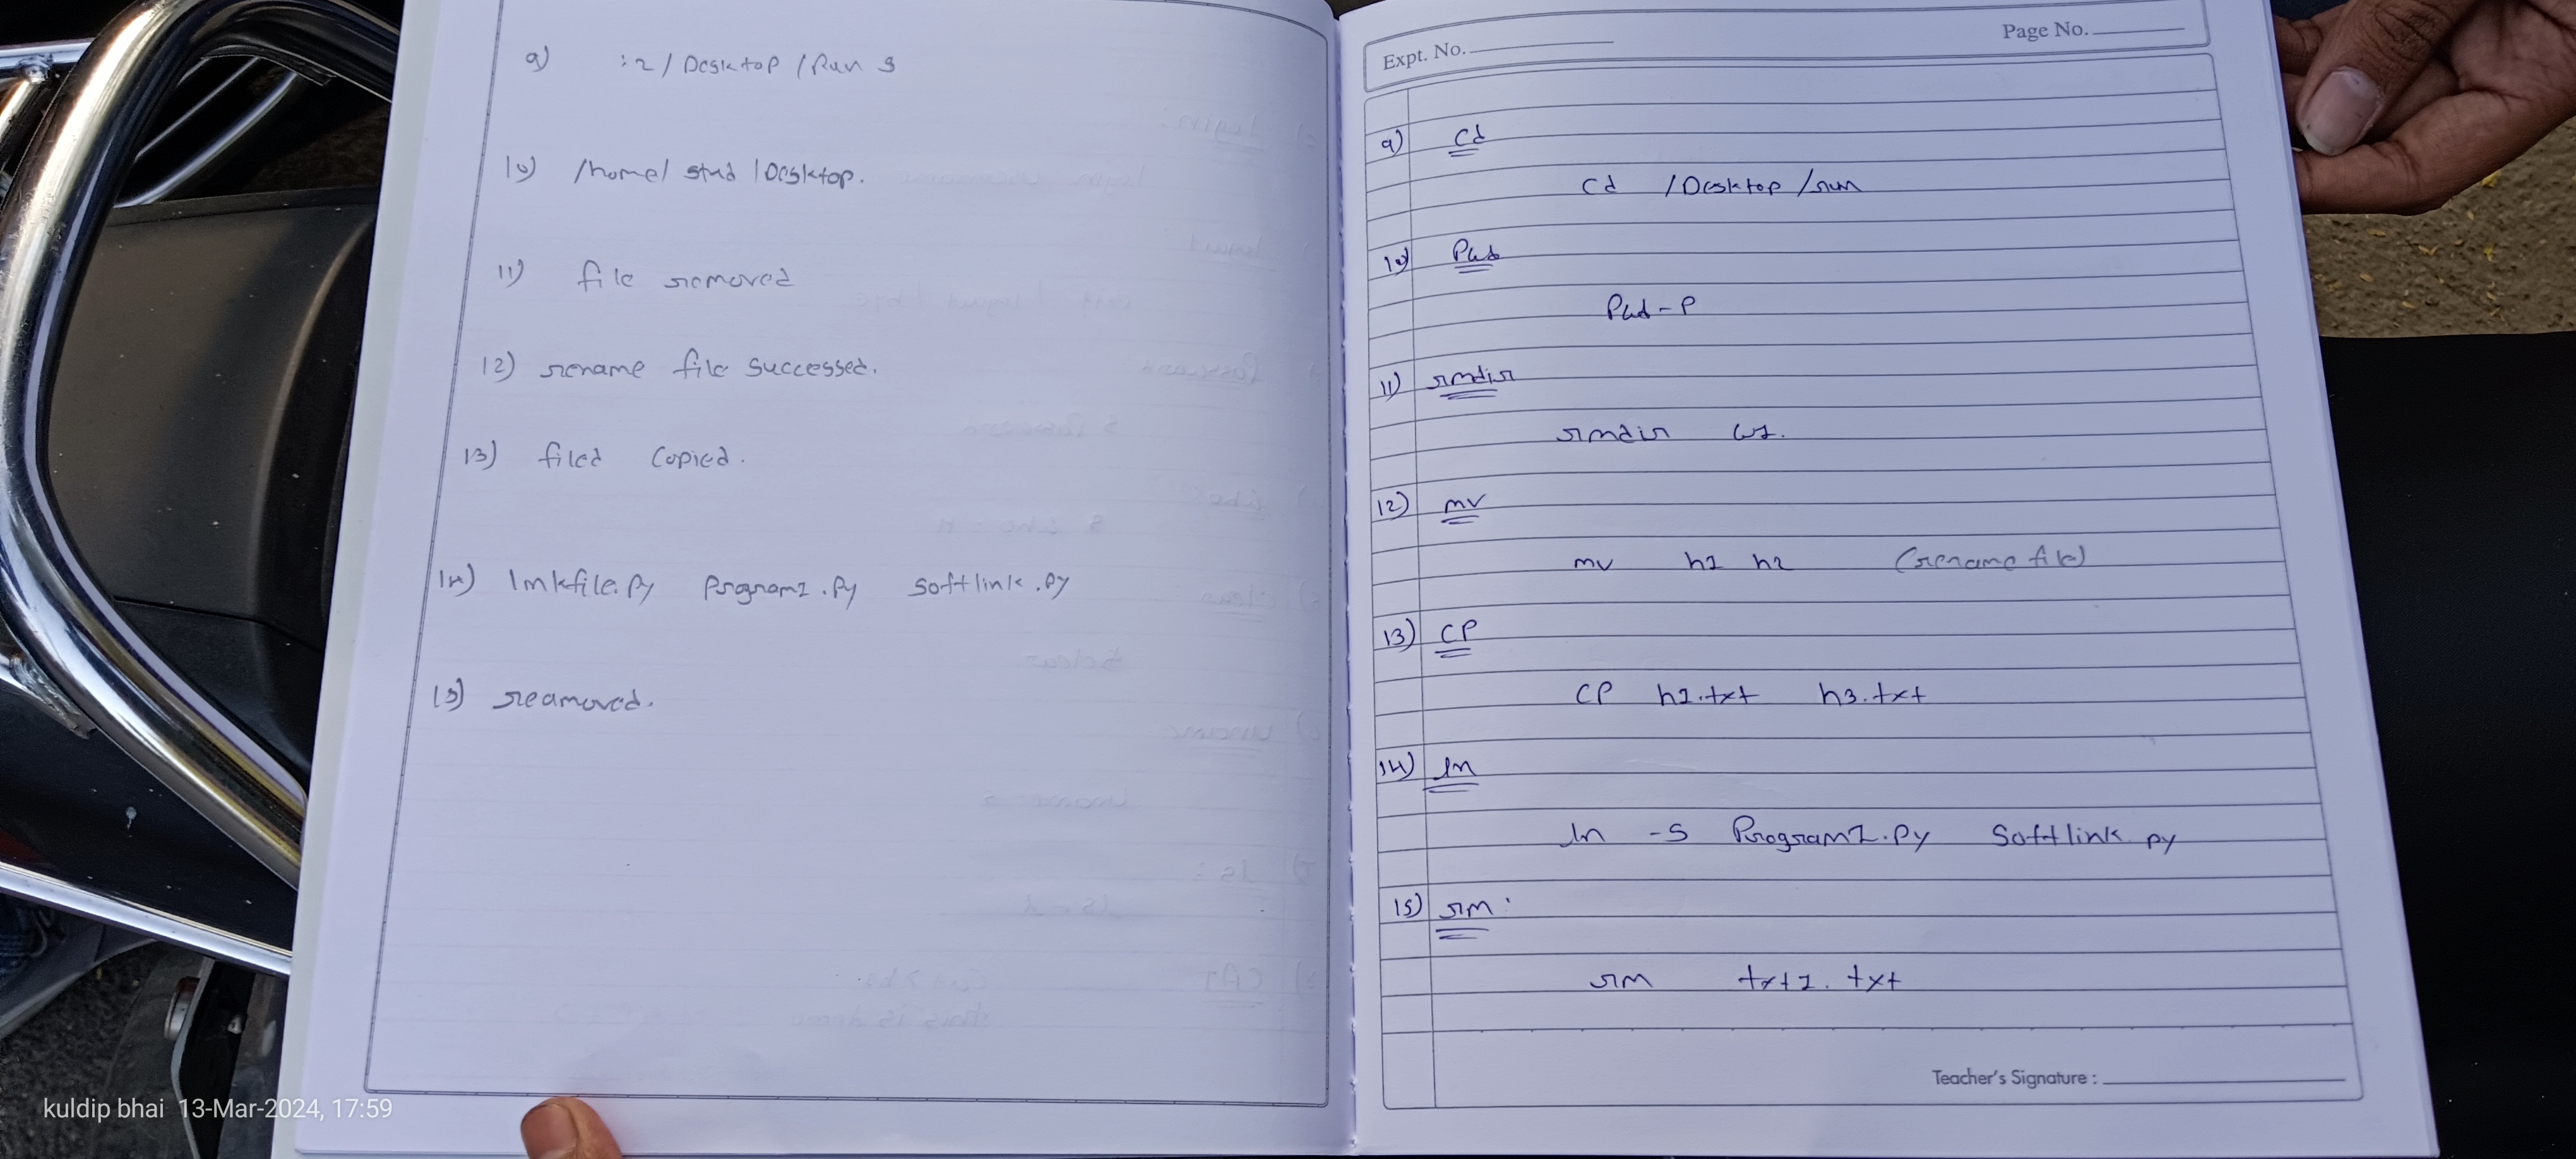 9) :~/Desktop/Run $
10) /home/stud/Desktop.
11) file removed
12) rename file successed.
13) filed copied.
14) lmkfile.py Program1.py softlink.py
15) reamoved.
Expt. No.
Page No.
9) Cd
Cd /Desktop/run
10) Pwd
Pwd -P
11) rmdir
rmdir w1.
12) mv
mv h1 h2 (rename file)
13) CP
CP h1.txt h3.txt
14) ln
ln -s Program1.py Softlink.py
15) rm:
rm txt1.txt
Teacher's Signature :
kuldip bhai 13-Mar-2024, 17:59